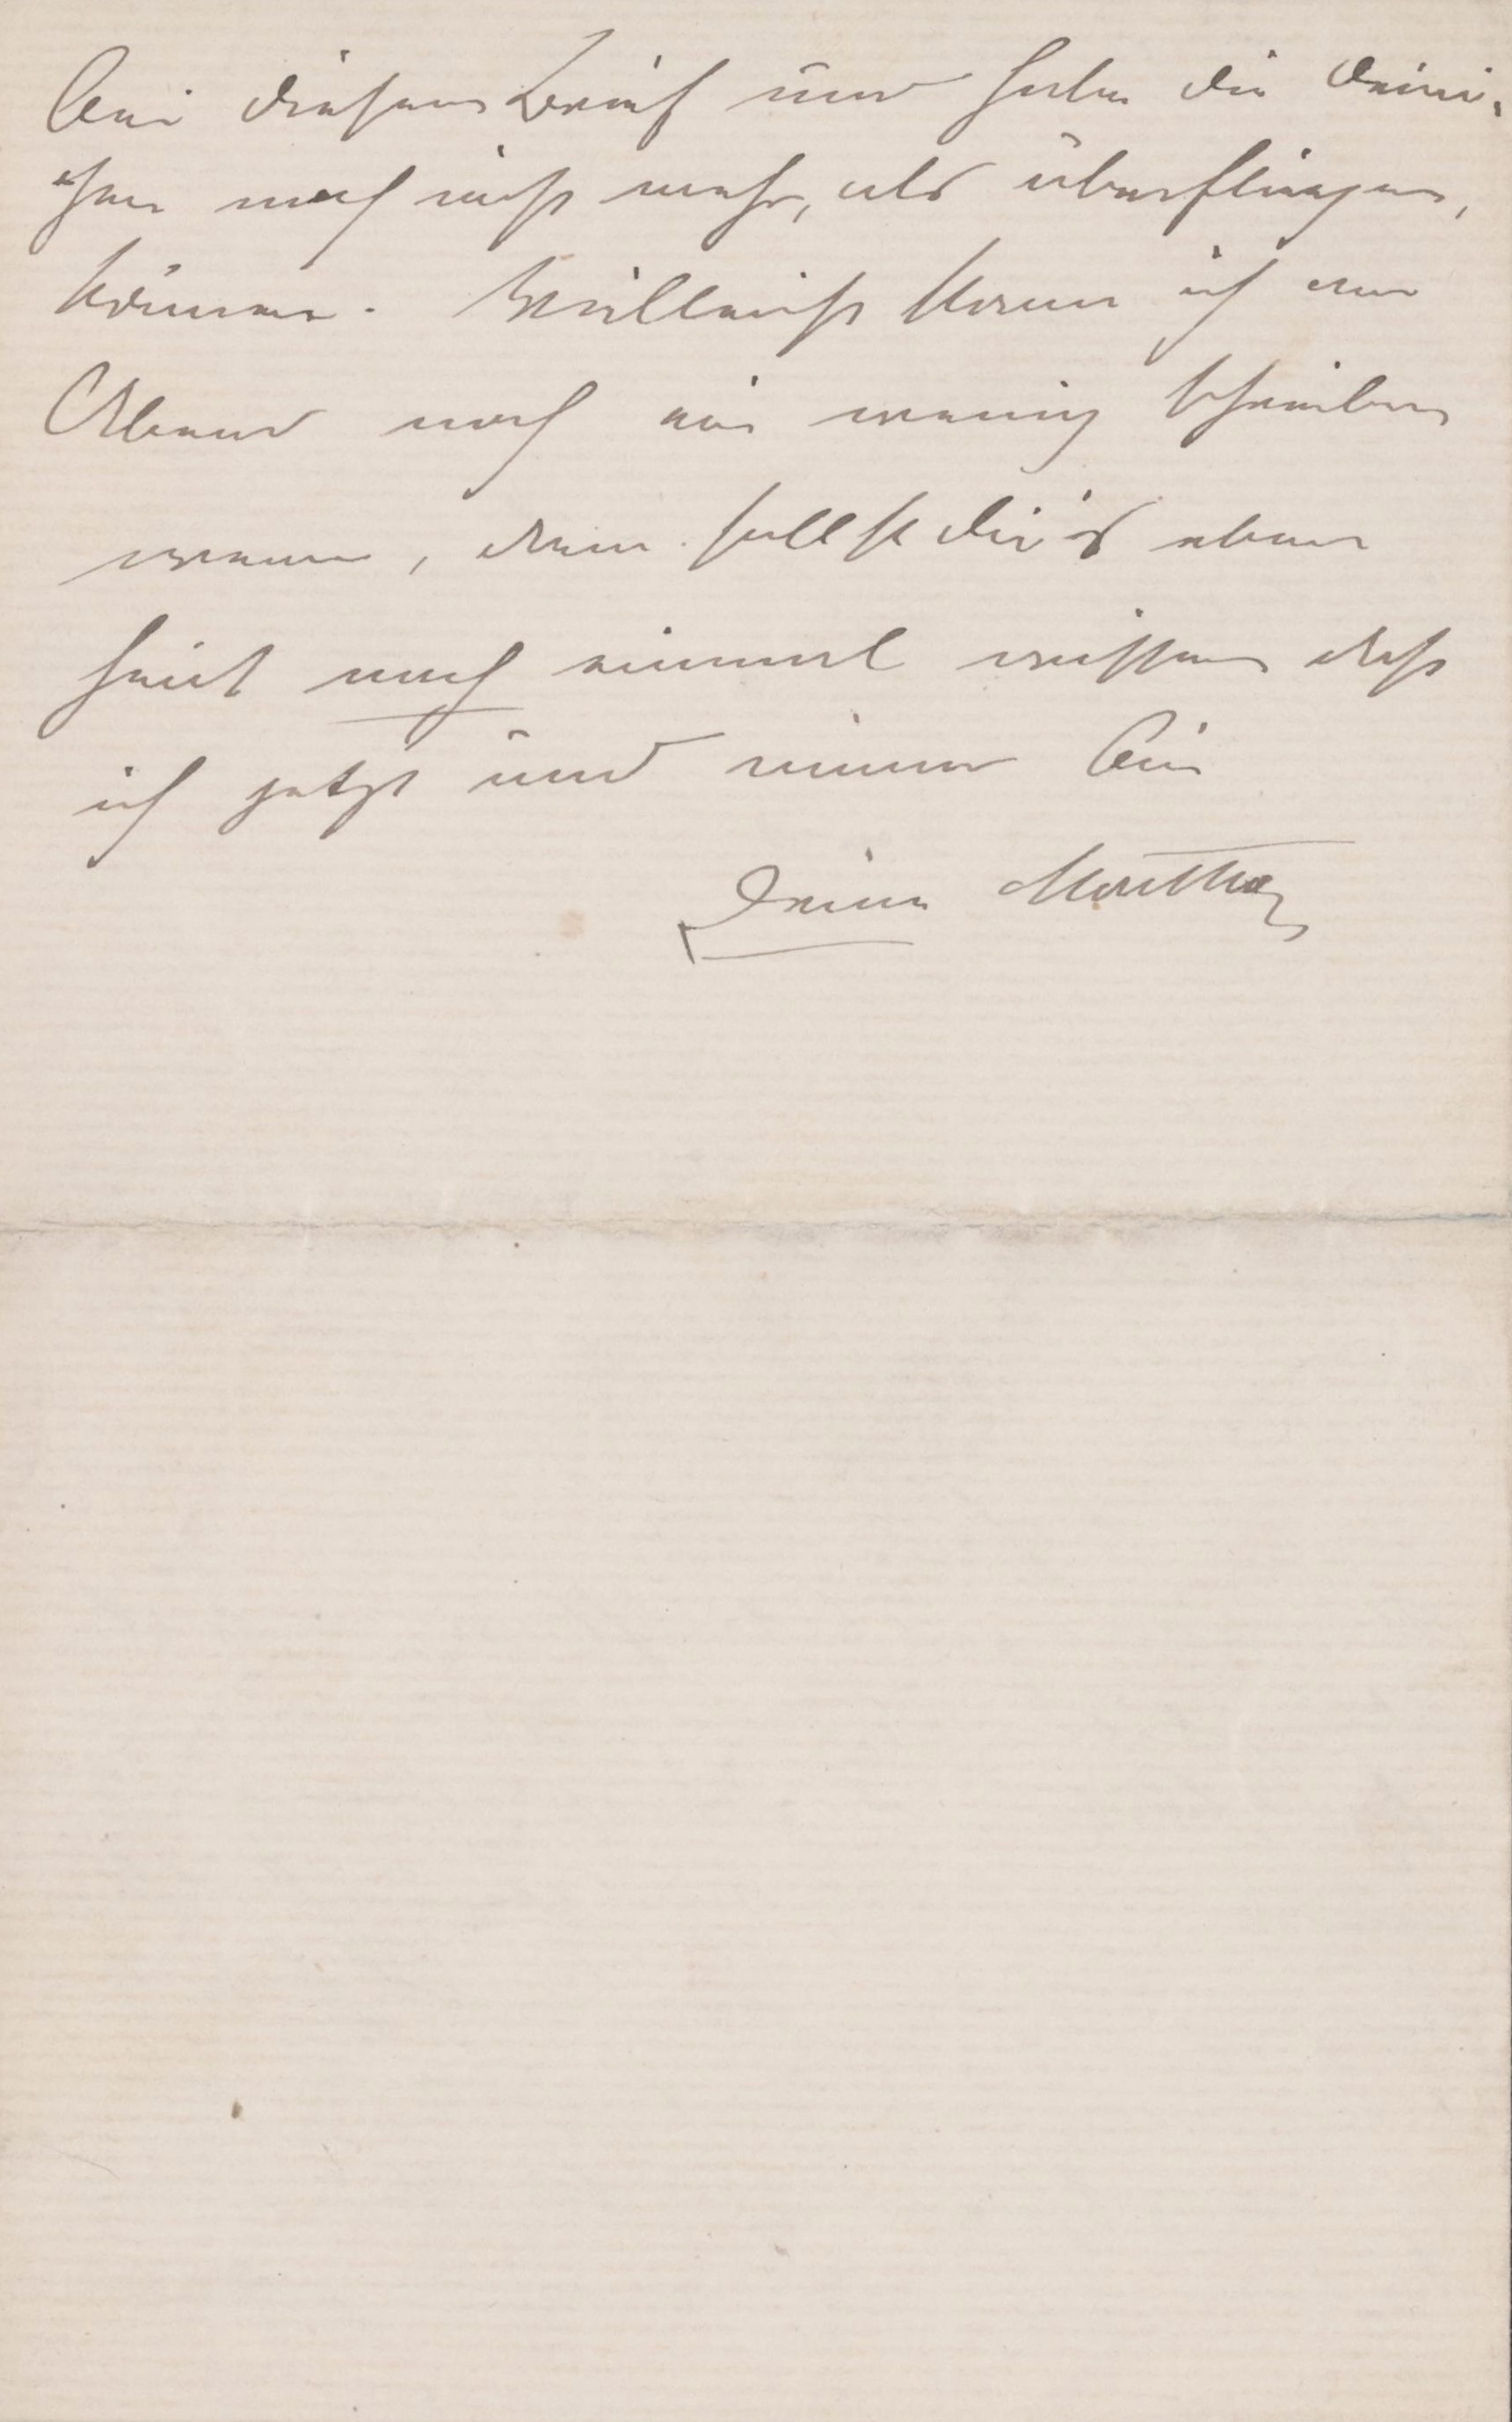 bei diesem Brief und habe die Deini-
gen noch nicht mehr, als überfliegen,
können. Vielleicht kann ich am
Abend noch ein wenig schreiben
wenn, dann sollst Du's eben
heut noch einmal wissen daß
ich jetzt und immer bin
Deine Martha